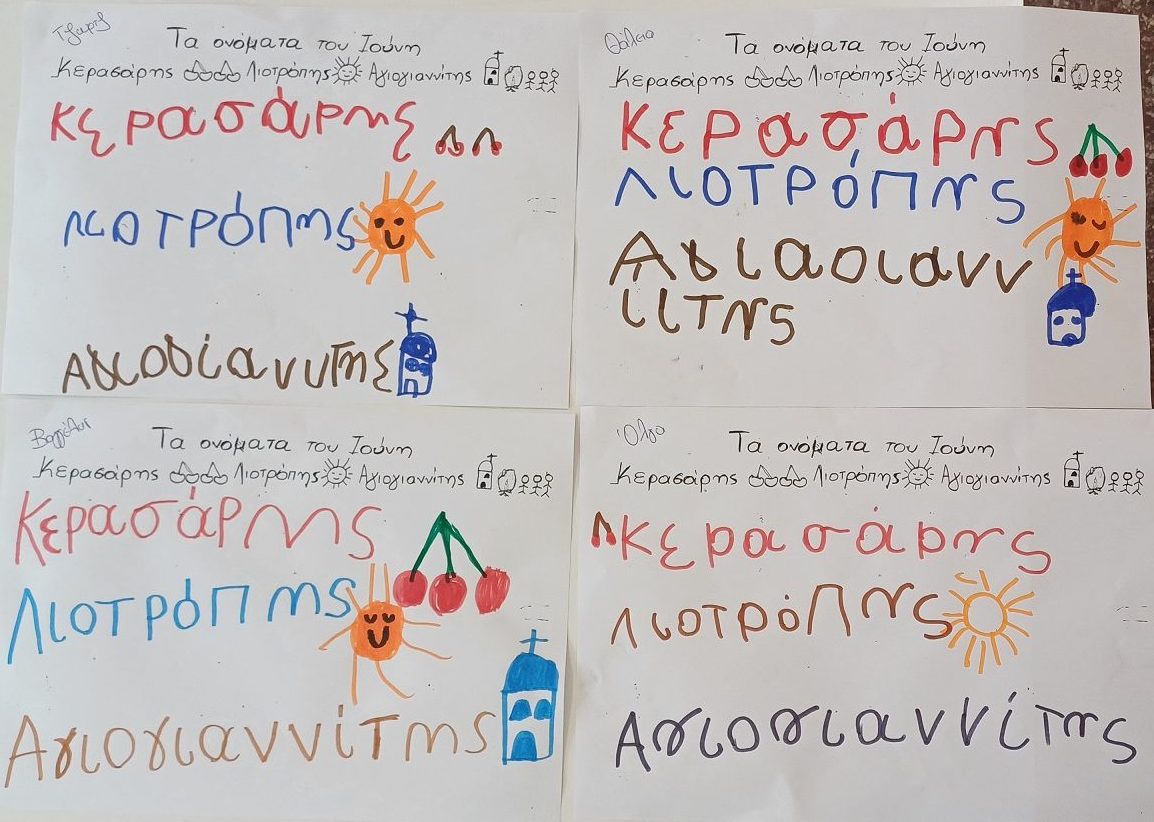 Τζωρτζ
Τα ονόματα του Ιούνη
Κερασάρης Λιοτρόπης Αγιογιαννίτης
Κερασάρης
Λιοτρόπης
Αγιογίαννυτης
Θάλεια
Τα ονόματα του Ιούνη
Κερασάρης Λιοτρόπης Αγιογιαννίτης
ΚΕΡασάΡης
ΛΙΟΤΡΌΠης
Αγιαοιανν
ιιτης
Βαγγέλης
Τα ονόματα του Ιούνη
Κερασάρης Λιοτρόπης Αγιογιαννίτης
Κερασάρης
Λιοτρόπης
Αγιογιαννίτης
Όλγα
Τα ονόματα του Ιούνη
Κερασάρης Λιοτρόπης Αγιογιαννίτης
Κερασάρης
Λιοτρόπης
Αγιογιαννίτης